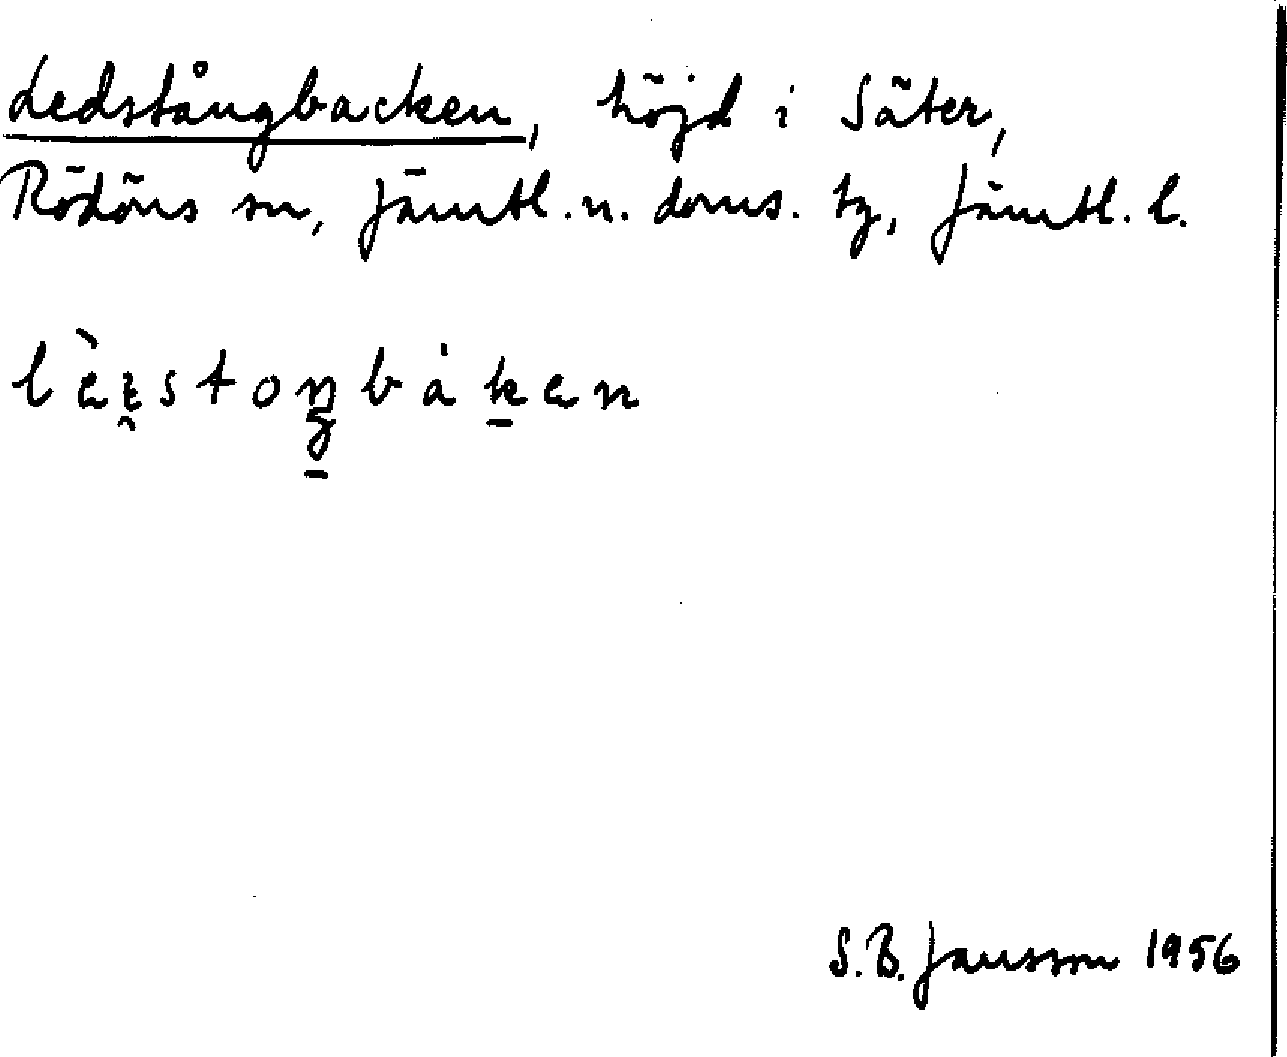 Ledstångbacken, höjd i Säter,
Rödöns sn, Jämtl. n. doms. tg, Jämtl. l.
S.B. Jansson 1956